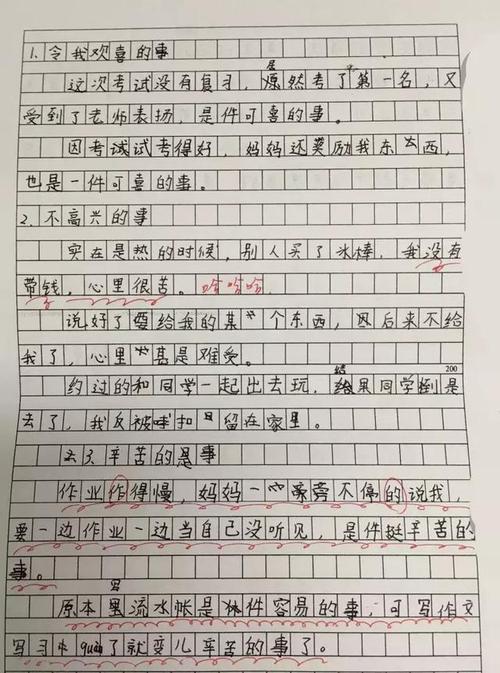 1.令我欢喜的事
这次考试没有复习,居然考了第一名,又
受到了老师表扬,是件可喜的事。
因考试试考得好,妈妈还奖励我东西,
也是一件可喜的事。
2.不高兴的事
实在是热的时候,别人买了冰棒,我没有
带钱,心里很苦。哈哈哈
说好了要给我的某个东西,因后来不给
我了,心里甚是难受。
200
约过的和同学一起出去玩,结果同学倒是
去了,我反被扣留在家里。
辛苦的是事
作业作得慢,妈妈一旁不停的说我,
要一边作业一边当自己没听见,是件挺辛苦的
事。
原本写流水帐是件容易的事,可写作文
写习中quan了就变儿辛苦的事了。